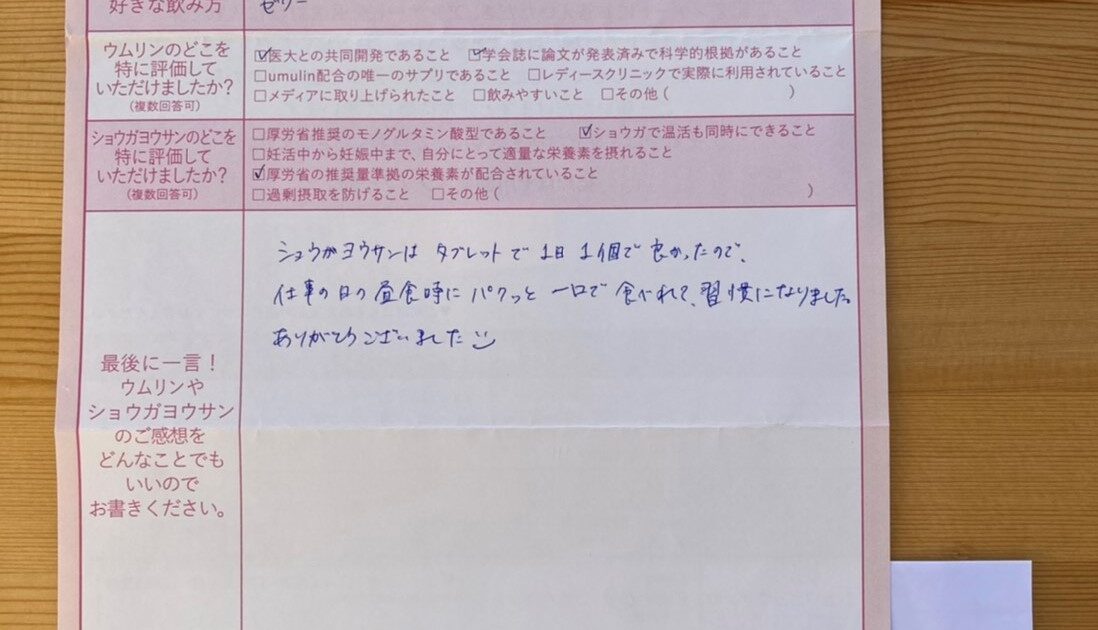 好きな飲み方
ゼリー
ウムリンのどこを
特に評価して
いただけましたか?
(複数回答可)
☑医大との共同開発であること ☑学会誌に論文が発表済みで科学的根拠があること
□umulin配合の唯一のサプリであること □レディースクリニックで実際に利用されていること
□メディアに取り上げられたこと □飲みやすいこと □その他( )
ショウガヨウサンのどこを
特に評価して
いただけましたか?
(複数回答可)
□厚労省推奨のモノグルタミン酸型であること ☑ショウガで温活も同時にできること
□妊活中から妊娠中まで、自分にとって適量な栄養素を摂れること
☑厚労省の推奨量準拠の栄養素が配合されていること
□過剰摂取を防げること □その他( )
最後に一言!
ウムリンや
ショウガヨウサン
のご感想を
どんなことでも
いいので
お書きください。
ショウガヨウサンは タブレットで 1日 1個で 良かったので、
仕事の日の昼食時に パクッと 一口で 食べれて、習慣になりました。
ありがとうございました